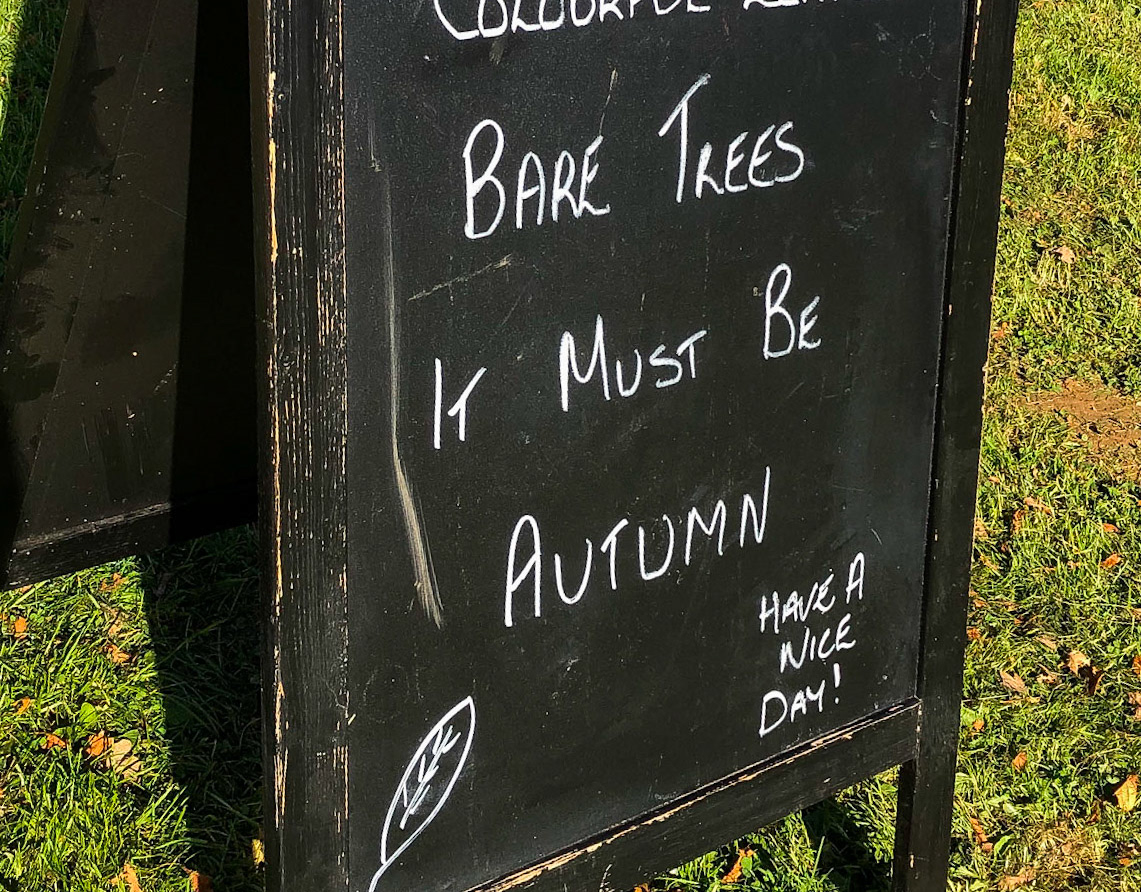 COLOURFUL
BARE TREES
IT MUST BE
AUTUMN
HAVE A
NICE
DAY!